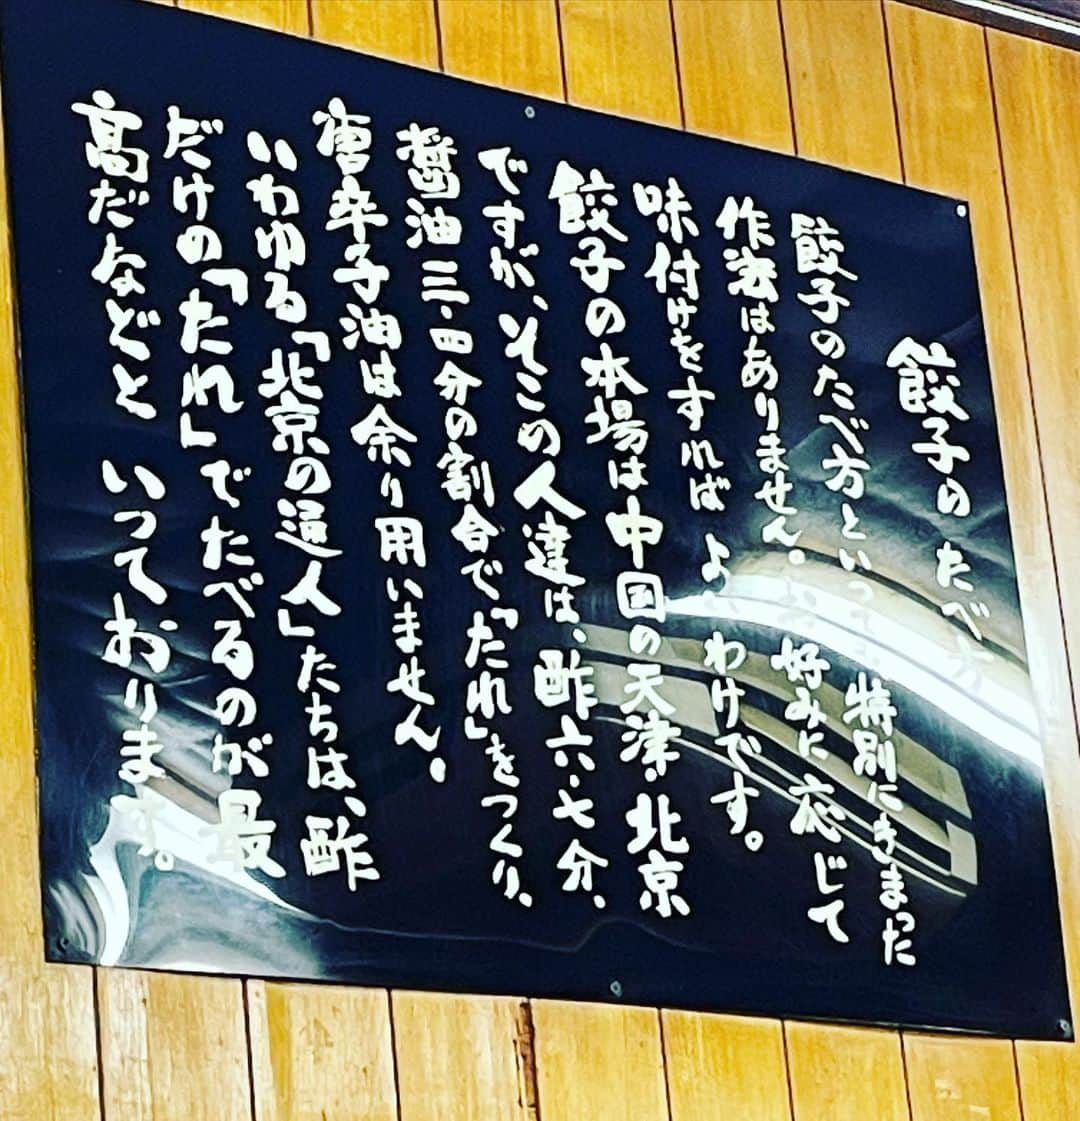 餃子のたべ方
餃子のたべ方といって特別にきまった
作法はありません。お好みに応じて
味付けをすればよいわけです。
餃子の本場は中国の天津・北京
ですが、そこの人達は、酢六・七分、
醤油三・四分の割合で「たれ」をつくり、
唐辛子油は余り用いません。
いわゆる「北京の通人」たちは、酢
だけの「たれ」でたべるのが最
高だなどといっております。